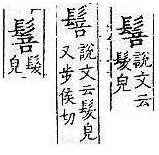 說文云
髮皃
說文云髮皃
又步侯切
髮
皃